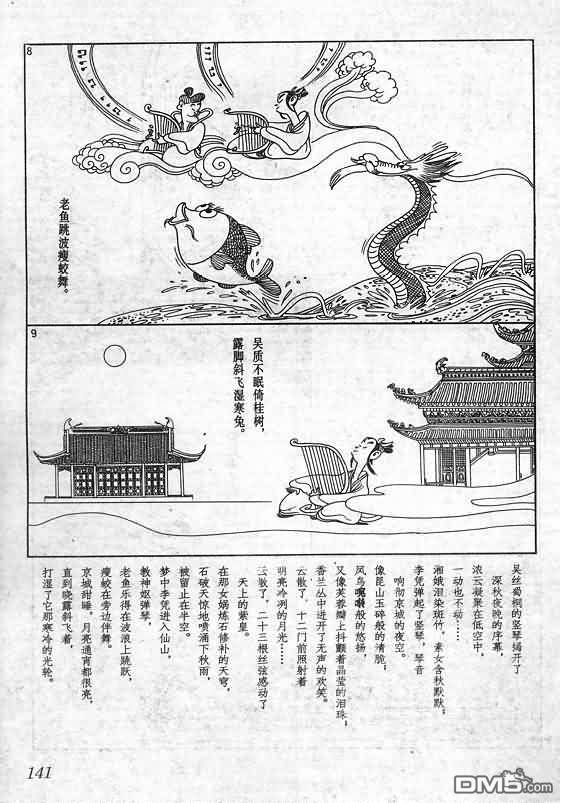 8
老鱼跳波瘦蛟舞。
9
吴质不眠倚桂树，
露脚斜飞湿寒兔。
吴丝蜀桐的竖琴揭开了
深秋夜晚的序幕，
浓云凝聚在低空中，
一动也不动……
湘娥泪染斑竹，素女含秋默默；
李凭弹起了竖琴，琴音
响彻京城的夜空。
像昆山玉碎般的清脆，
凤鸟啭般的悠扬，
又像芙蓉瓣上抖颤着晶莹的泪珠；
香兰丛中迸开了无声的欢笑。
云散了，十二门前照射着
明亮冷冽的月光……
云散了，二十三根丝弦感动了
天上的紫皇。
在那女娲炼石修补的天穹，
石破天惊地喷涌下秋雨，
被留止在半空。
梦中李凭进入仙山，
教神妪弹琴，
老鱼乐得在波浪上跳跃，
瘦蛟在旁边伴舞。
京城甜睡，月亮通宵都很亮，
直到晓露斜飞着，
打湿了它那寒冷的光轮。
141
DM5.com